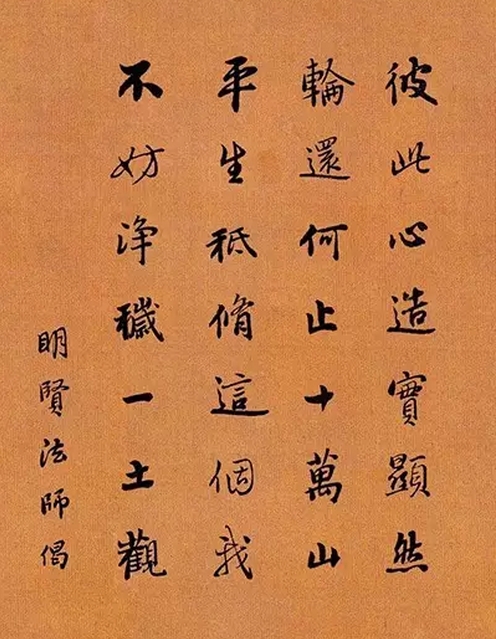 彼此心造實顯然
輪還何止十萬山
平生秪脩這個我
不妨淨穢一土觀
明賢法師偈